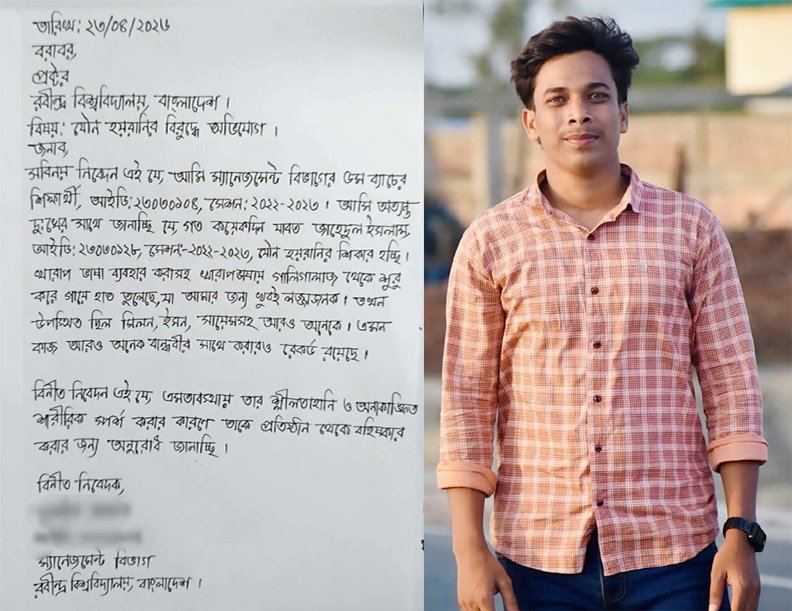 তারিখ: ২৩/০৪/২০২৬
বরাবর,
প্রক্টর
রবীন্দ্র বিশ্ববিদ্যালয়, বাংলাদেশ।
বিষয়: যৌন হয়রানির বিরুদ্ধে অভিযোগ।
জনাব,
সবিনয় নিবেদন এই যে, আমি ম্যানেজমেন্ট বিভাগের ৬ষ্ঠ ব্যাচের
শিক্ষার্থী, আইডি: ২৩০৩০১০৪, সেশন: ২০২২-২০২৩। আমি অত্যন্ত
দুঃখের সাথে জানাচ্ছি যে, গত কয়েকদিন যাবত জাহেদুল ইসলাম,
আইডি: ২৩০৩০১২৮, সেশন-২০২২-২০২৩, যৌন হয়রানির শিকার হচ্ছি।
খারাপ ভাষা ব্যবহার করাসহ খারাপভাষায় গালিগালাজ থেকে শুরু
করে গায়ে হাত তুলেছে, যা আমার জন্য খুবই লজ্জাজনক। তখন
উপস্থিত ছিল মিলন, ইমন, সায়েমসহ আরও অনেকে। এমন
কাজ আরও অনেক বান্ধবীর সাথে করারও রেকর্ড রয়েছে।
বিনীত নিবেদন এই যে, এমতাবস্থায় তার শ্লীলতাহানি ও অনাকাঙ্ক্ষিত
শারীরিক স্পর্শ করার কারণে তাকে প্রতিষ্ঠান থেকে বহিষ্কার
করার জন্য অনুরোধ জানাচ্ছি।
বিনীত নিবেদক,
ম্যানেজমেন্ট বিভাগ
রবীন্দ্র বিশ্ববিদ্যালয়, বাংলাদেশ।